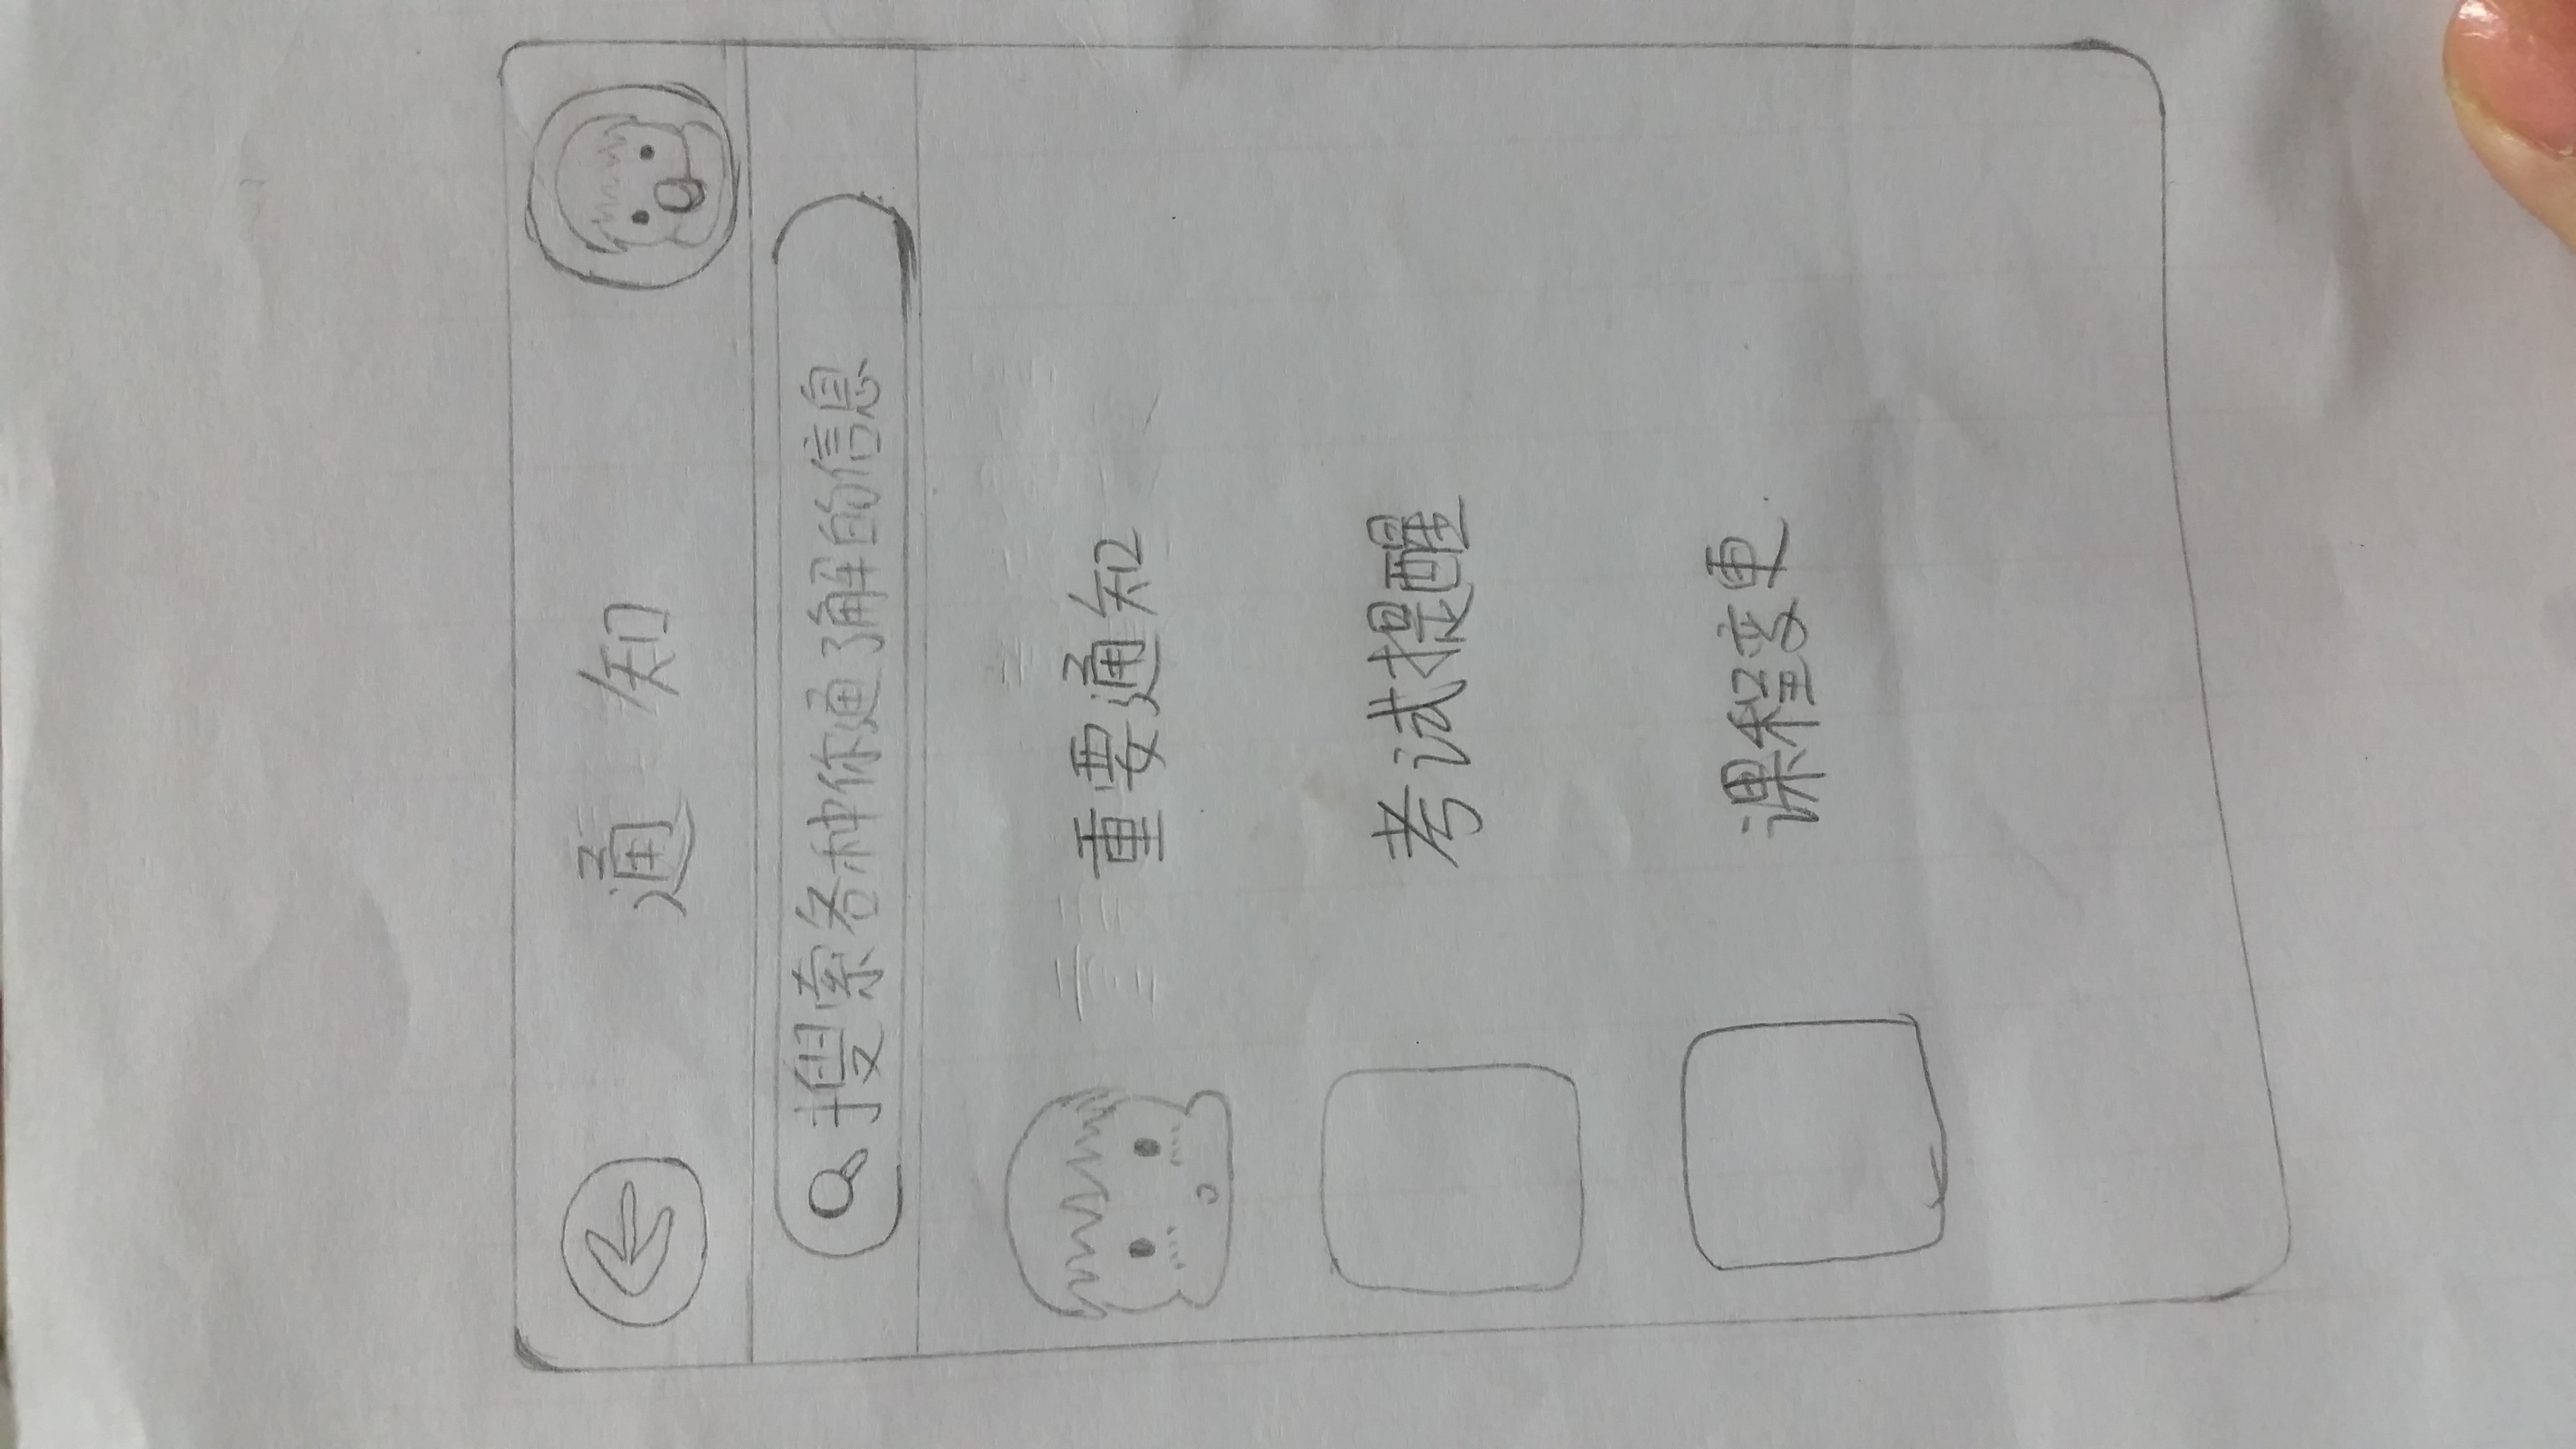 通知
搜索各种你通了解的信息
重要通知
考试提醒
课程变更